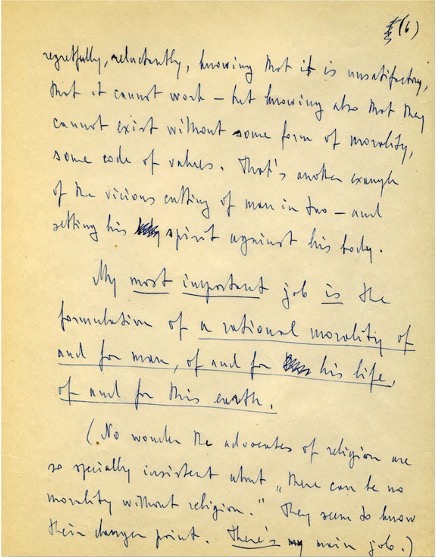 (6)
regretfully, reluctantly, knowing that it is unsatisfactory,
that it cannot work – but knowing also that they
cannot exist without some form of morality,
some code of values. That's another example
of the vicious cutting of man in two – and
setting his spirit against his body.
My most important job is the
formulation of a rational morality of
and for man, of and for his life,
of and for this earth.
(No wonder the advocates of religion are
so specially insistent about „there can be no
morality without religion." They seem to know
their danger point. There's my main job.)